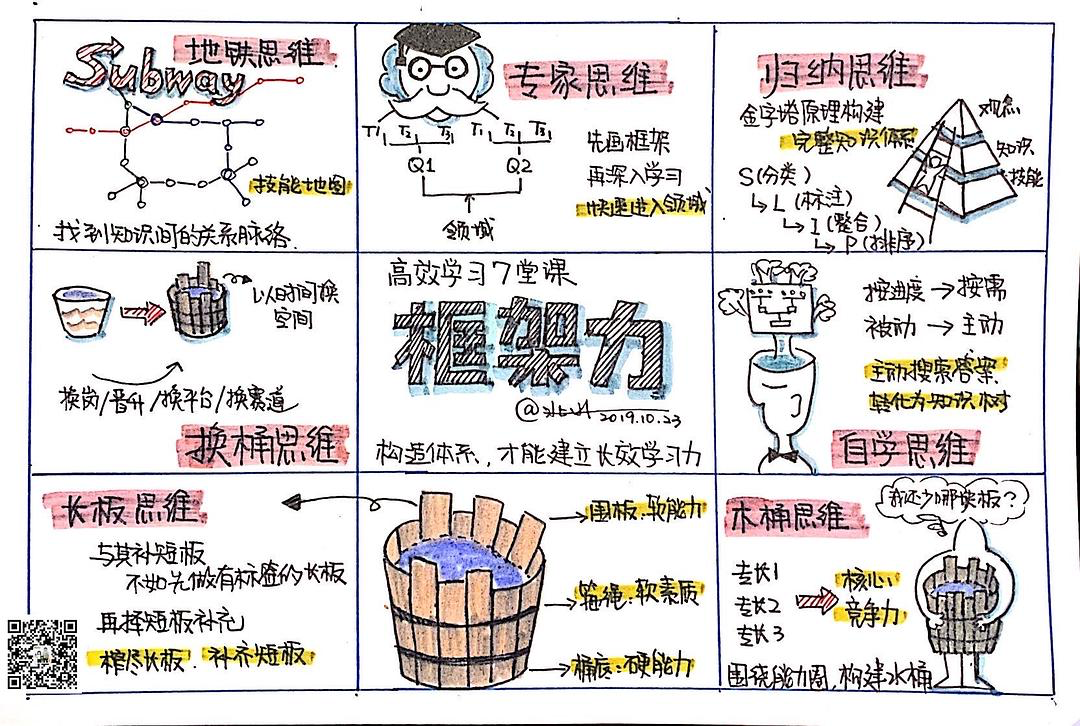 地铁思维
Subway
技能地图
找到知识间的关系脉络.
专家思维
T1 T2 T3 T1 T2 T3
Q1 Q2
领域
先画框架
再深入学习
快速进入领域
归纳思维
金字塔原理构建
完整知识体系
S(分类)
L(标注)
I(整合)
P(排序)
观念
知识
技能
以时间换
空间
换岗/晋升/换平台/换赛道
换桶思维
高效学习7堂课
框架力
2019.10.23
构造体系,才能建立长效学习力
按进度→按需
被动→主动
主动搜索答案
转化为知识树
自学思维
长板思维
与其补短板
不如先做有标签的长板
再择短板补充
补齐短板
围板:软能力
箍绳:软素质
桶底:硬能力
木桶思维
我还少哪块板?
专长1
专长2
专长3
核心
竞争力
围绕能力圈,构建水桶